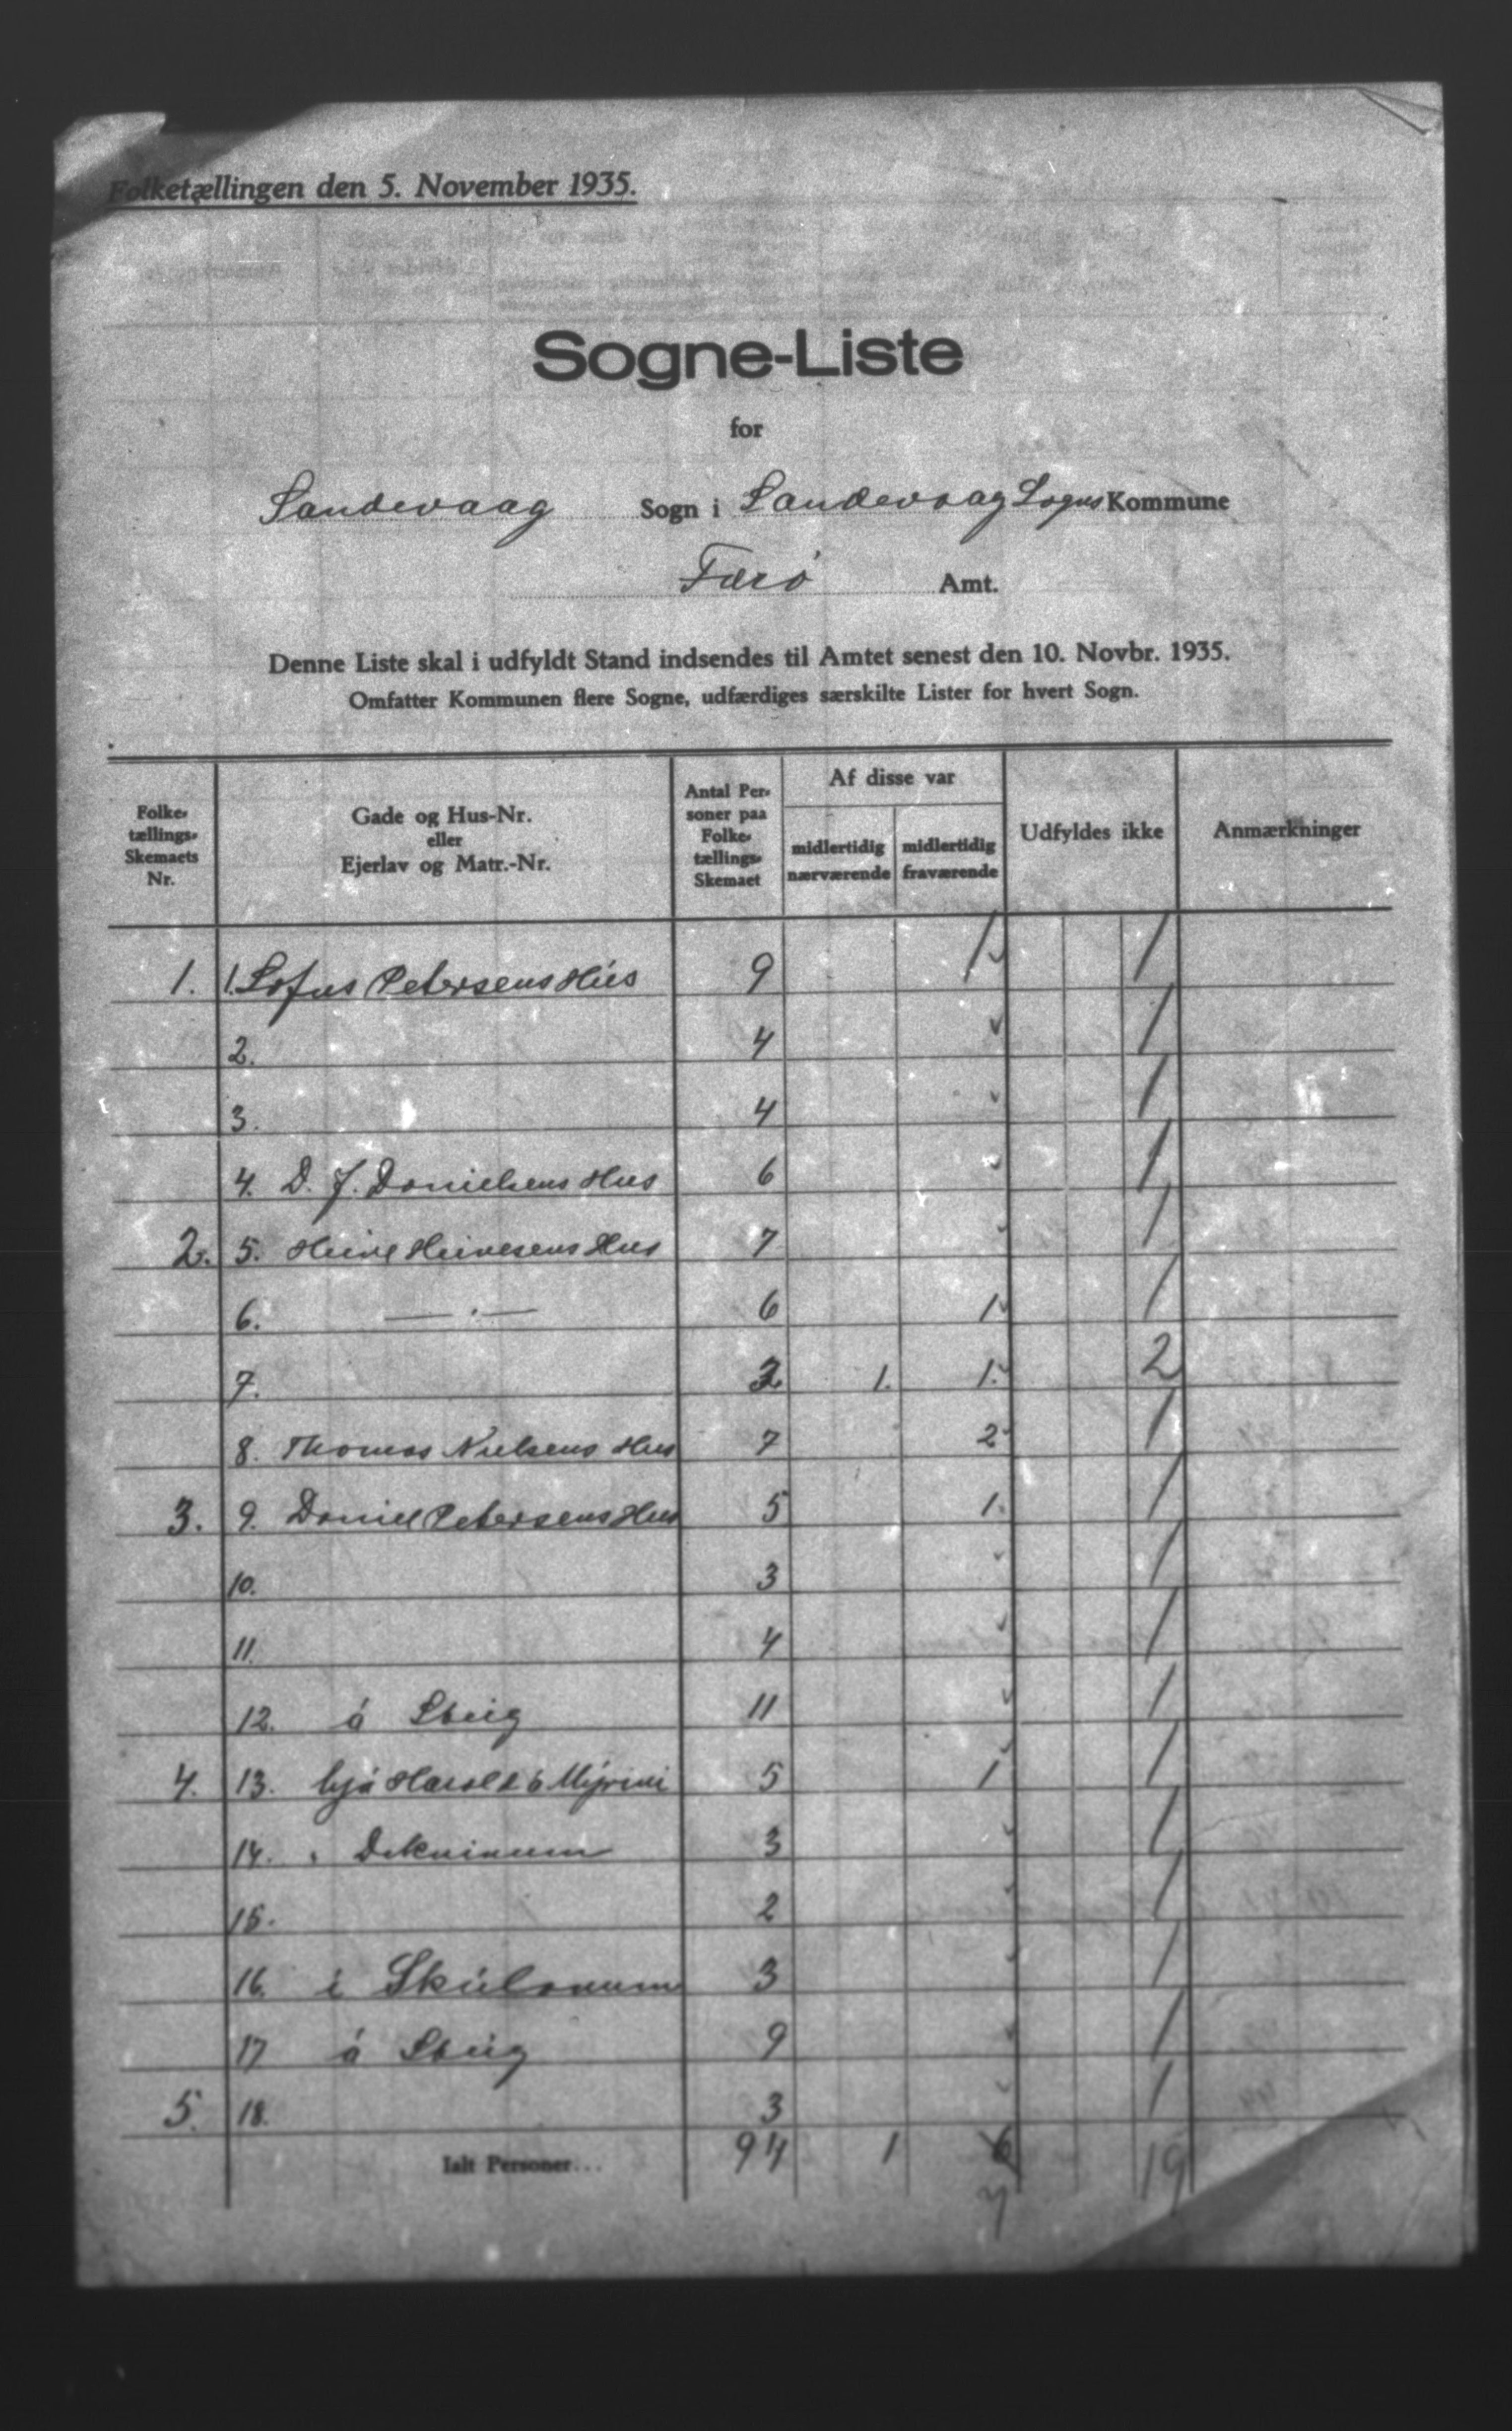 Folketællingen den 5. November 1935.
Sogne-Liste
for
Sandevaag Sogn i Sandevaag Sogns Kommune
Færø Amt.
Denne Liste skal i udfyldt Stand indsendes til Amtet senest den 10. Novbr. 1935.
Omfatter Kommunen flere Sogne, udfærdiges særskilte Lister for hvert Sogn.
Folketællings-Skemaets Nr. | Gade og Hus-Nr. eller Ejerlav og Matr.-Nr. | Antal Personer paa Folketællings-Skemaet | Af disse var midlertidig nærværende | midlertidig fraværende | Udfyldes ikke | Anmærkninger
1. 1. Sofus Petersens Hús 9 1 1
2. 4 1
3. 4 1
4. D. J. Danielsens Hus 6 1
2. 5. Heine Heinesens Hus 7 1
6. — · — 6 1 1
7. 1. 1. 2
8. Thomas Nielsens Hus 7 2 1
3. 9. Daniel Petersens Hus 5 1. 1
10. 3 1
11. 4 1
12. á Steig 11 1
4. 13. hjá Harald á Mýrini 5 1 1
14. 3 1
15. 2 1
16. i 3 1
17 á Steig 9 1
5. 18. 3 1
Ialt Personer... 94 1 6 19
7